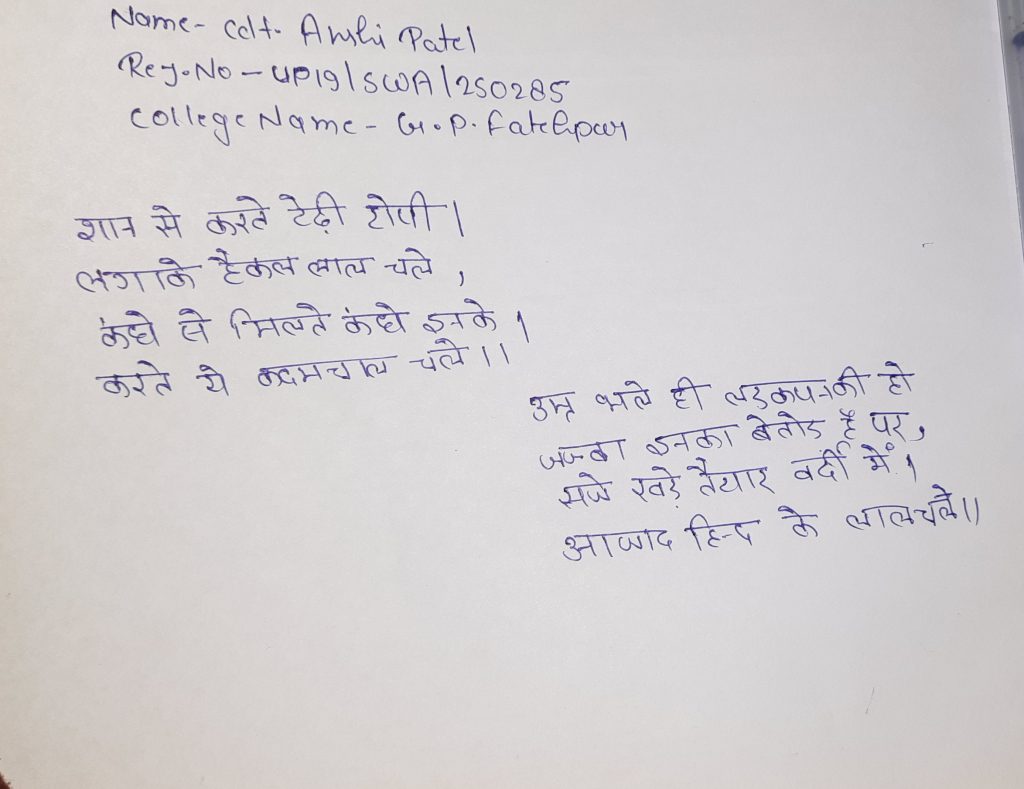 Name- Cdt. Anshi Patel
Reg.No - UP19/SWA/250285
College Name - G.P. Fatehpur
शान से करते टेढ़ी टोपी।
लगाके हैकल लाल चले,
कंधे से मिलते कंधे इनके।
करते ये कदमचाल चले।।
उम्र भले ही लड़कपन की हो
जज्बा इनका बेतोड है पर,
सजे खड़े तैयार वर्दी में।
आजाद हिन्द के लाल चले।।